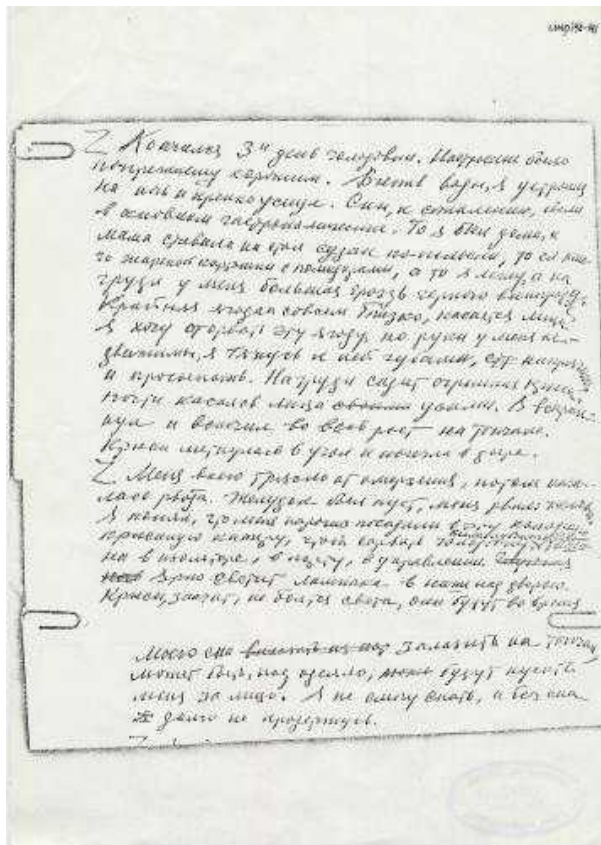 Кончился 3й день голодовки. Настроение было
попрежнему хорошим. Выпив воды, я устроился
на ночь и крепко уснул. Сны, к сожалению, были
в основном гастрономические. То я был дома, и
мама ставила на стол судак по-польски, то
жареной картошки с помидорами, а то я лежу, а на
груди у меня большая гроздь черного винограда,
крайняя ягода совсем близко, касается лица.
Я хочу оторвать эту ягоду, но руки у меня не-
движимы, я тянусь к ней губами,
и просыпаюсь. На груди сидит огромная крыса,
почти касаясь лица усами. Я вскрик-
нул и вскочил во весь рост на топчане.
Крыса метнулась в угол и исчезла в дыре.
Меня всего трясло от омерзения, потом нача-
лась рвота. Желудок был пуст, меня рвало
Я понял, что меня нарочно посадили в эту
крысиную камеру, чтоб сорвать голодовку
на в изоляторе,
Ярко светит лампочка в нише над дверью.
Крысы, значит, не боятся света, они будут во время
моего сна залазить на топчан,
может быть, под одеяло, будут кусать
меня за лицо. Я не смогу спать, а без сна
долго не продержусь.